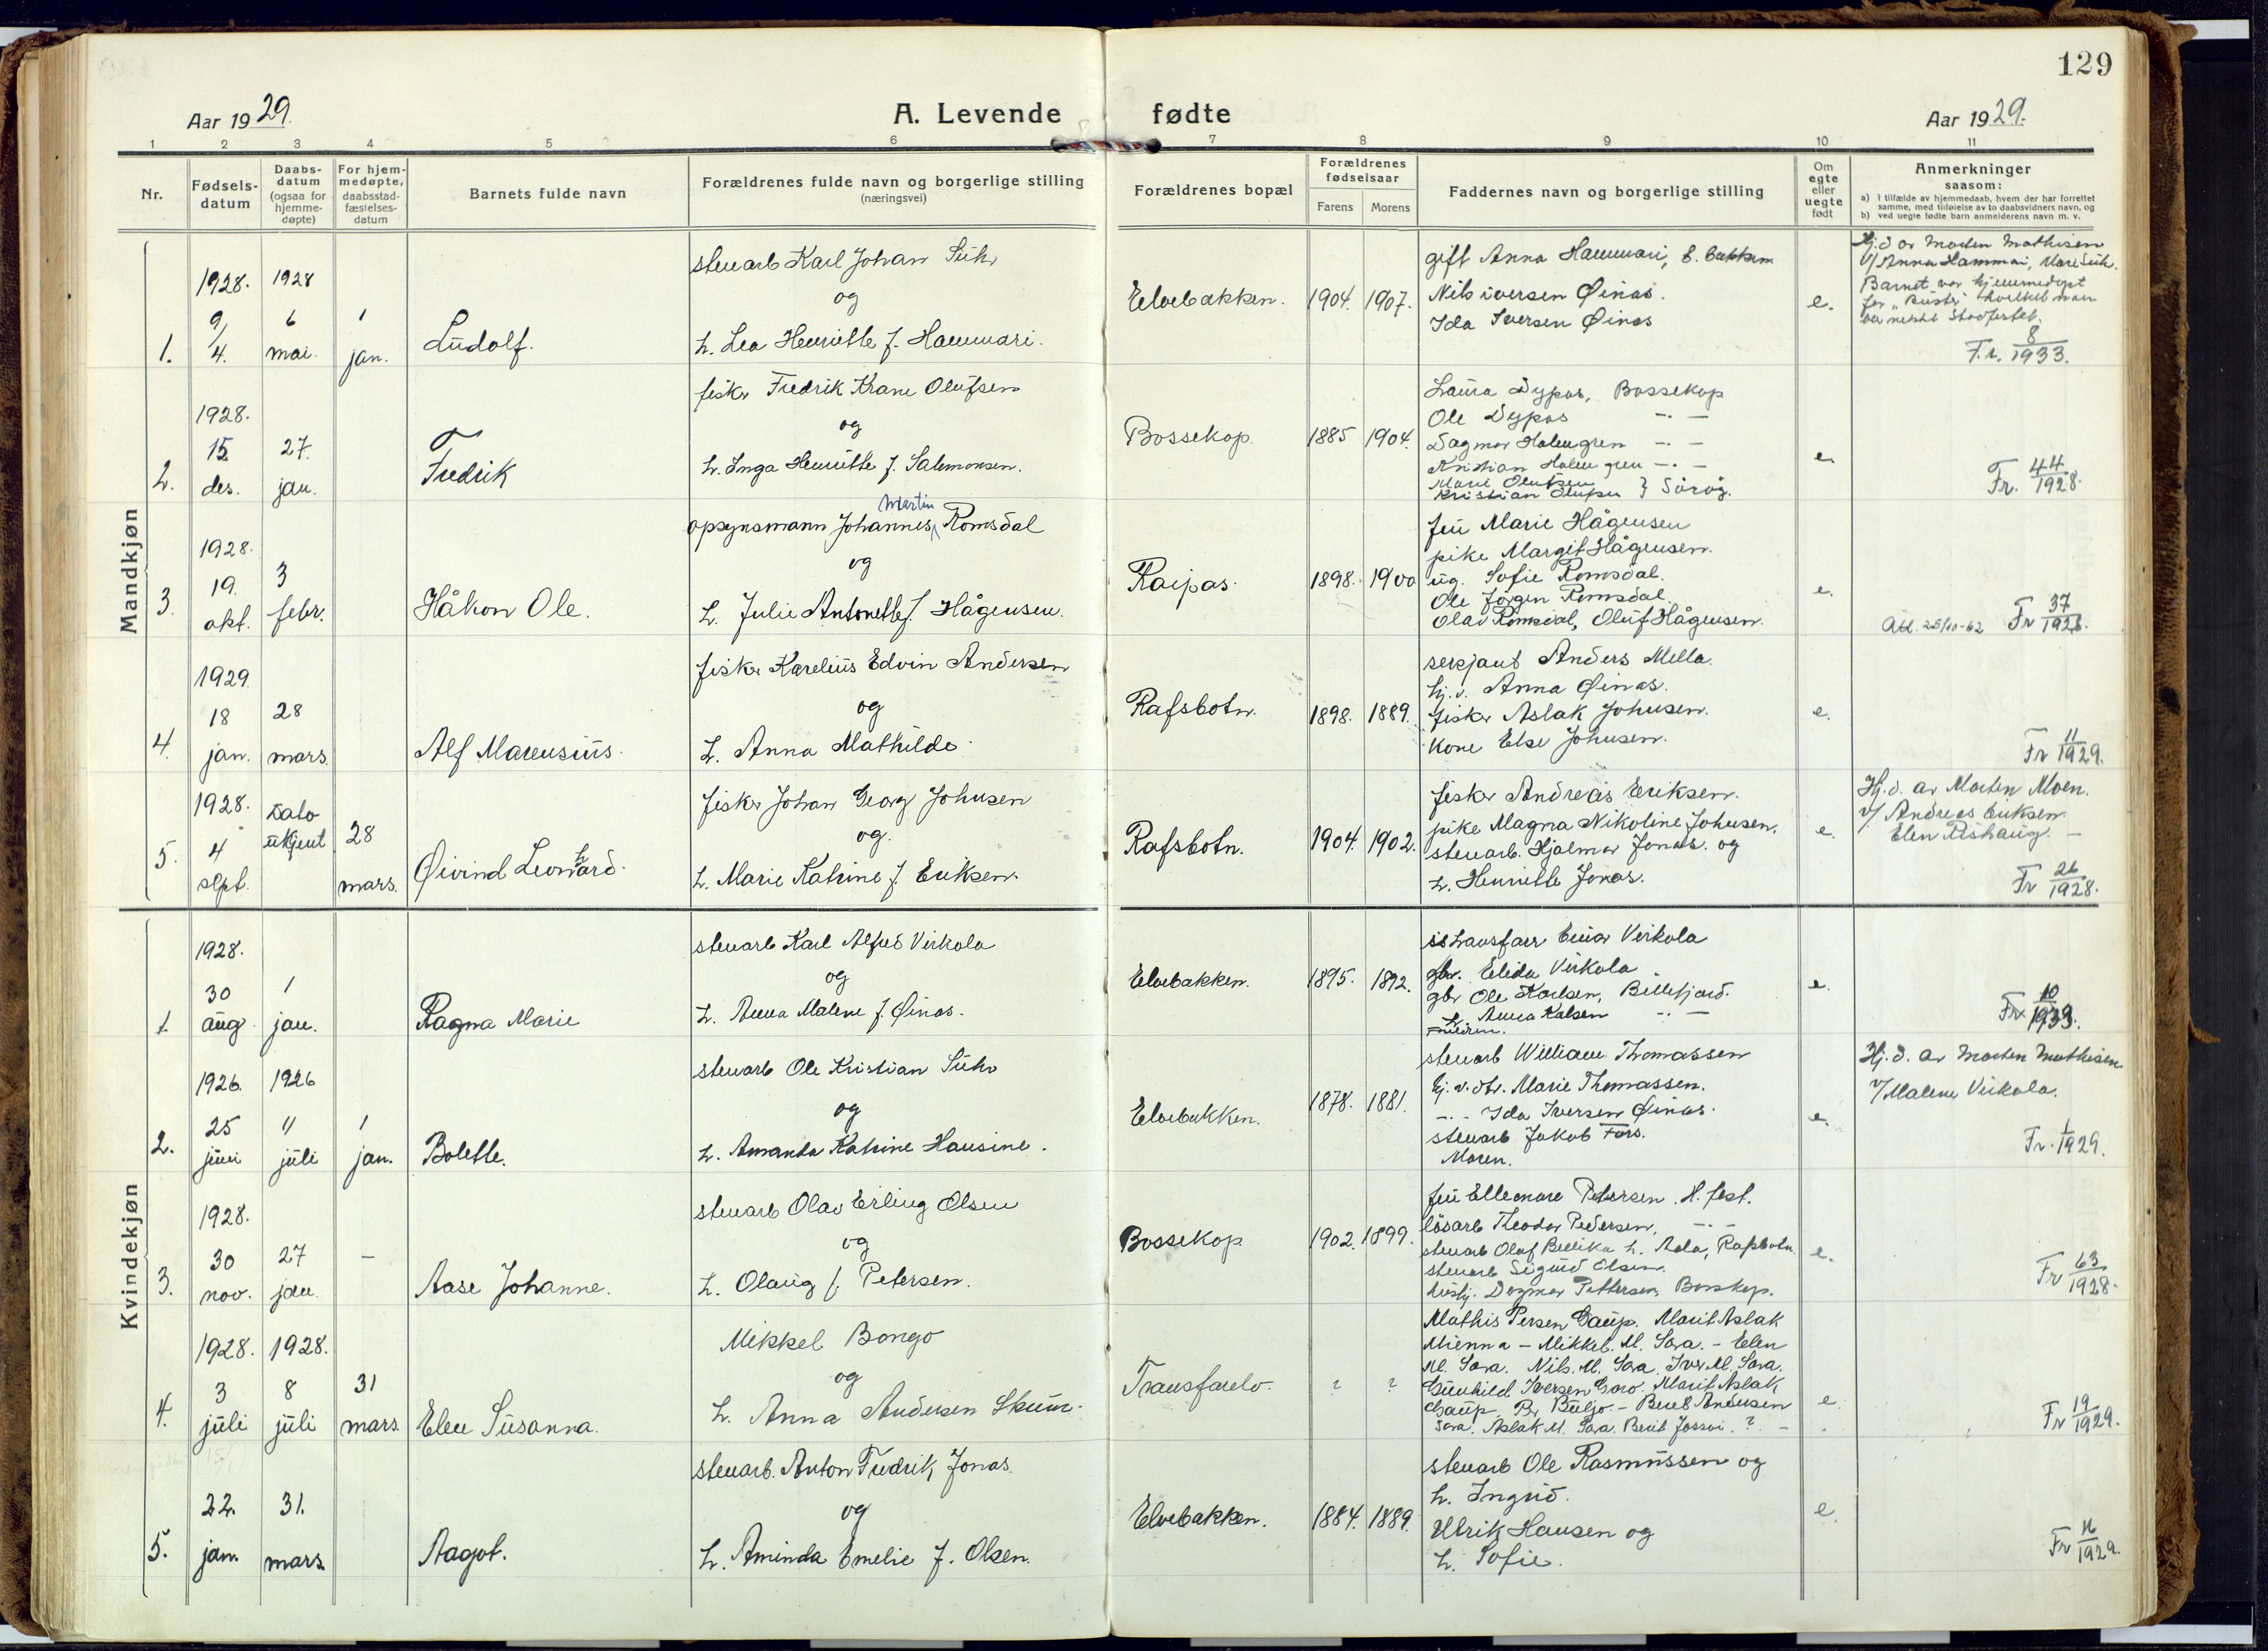 129
Aar 1929.
A. Levende fødte
Aar 1929.
1 2 3 4 5 6 7 8 9 10 11
Nr.
Fødsels-
datum
Daabs-
datum
(ogsaa for
hjemme-
døpte)
For hjem-
medøpte,
daabsstad-
fæstelses-
datum
Barnets fulde navn
Forældrenes fulde navn og borgerlige stilling
(næringsvei)
Forældrenes bopæl
Forældrenes
fødselsaar
Farens Morens
Faddernes navn og borgerlige stilling
Om
egte
eller
uegte
født
Anmerkninger
saasom:
a) I tilfælde av hjemmedaab, hvem der har forrettet
samme, med tilføielse av to daabsvidners navn, og
b) ved uegte fødte barn anmelderens navn m. v.
Mandkjøn
1.
1928.
9/
4.
1928
6
mai.
1
jan.
Ludolf.
stenarb Karl Johan Suhr
og
h. Lea Henriette f. Hammari.
Elvebakken.
1904. 1907.
gift Anna Hammari, E. bakken
Nils iversen Øinas.
Ida Iversen Øinas
e.
Hj.d av Morten Mathisen
v/ Anna Hammari, Mari Suhr.
Barnet var hjemmedøpt
Fr. 8/1933.
2.
1928.
15
des.
27.
jan.
Fredrik
fisker Fredrik Krane Olufsen
og
h. Inga Henriette f. Salamonsen.
Bossekop.
1885 1904.
Laura Dypas, Bossekop
Ole Dypas -.-
Dagmar Holmgren -.-
Kristian Holmgren -.-
Marie Olufsen
Kristian Olufsen } Sørøy.
e.
Fr. 44/1928.
3.
1928.
19.
okt.
3
febr.
Håkon Ole.
Martin
opsynsmann Johannes Romsdal
og
h. Julie Antonette f. Hågensen.
Raipas.
1898. 1900
fru Marie Hågensen
pike Margit Hågensen.
ug. Sofie Romsdal.
Ole Jørgen Romsdal.
Olav Romsdal, Oluf Hågensen.
e.
Att. 25/10-62 Fr 37/1928.
4.
1929
18
jan.
28
mars.
Alf Marensius.
fisker Karelius Edvin Andersen
og
h. Anna Mathilde.
Rafsbotn.
1898. 1889.
serjant Anders Mella.
hj.v. Anna Øinas.
fisker Aslak Johnsen.
Kone Else Johnsen.
e.
Fr 11/1929.
5.
1928.
4
sept.
Dato
ukjent
28
mars.
Øivind Leonhard.
fisker Johan Georg Johnsen
og.
h. Marie Katrine f. Eriksen.
Rafsbotn.
1904. 1902.
fisker Andreas Eriksen.
pike Magna Nikoline Johnsen.
stenarb. Hjalmar Jonas. og
h. Henriette Jonas.
e.
Hj.d. av Morten Moen.
v/ Andreas Eriksen
Elen Rishaug. -
Fr 26/1928.
Kvindekjøn
1.
1928.
30
aug.
1
jan.
Ragna Marie
stenarb Karl Alfred Virkola
og
h. Anna Malene f. Øinas.
Elvebakken.
1895. 1892.
ishavsfarer Einar Virkola
gbr. Elida Virkola
gbr Ole Karlsen, Billefjord.
h. Anna Kalsen -.-
e.
2.
1926.
25
juni
1926
11
juli
1
jan.
Bolette.
stenarb Ole Kristian Suhr
og
h. Amanda Katrine Hansine.
Elvebakken.
1878. 1881.
stenarb William Thomassen
hj.v.dtr. Marie Thomassen.
-.- Ida Iversen Øinas.
stenarb Jakob Fors.
Moren.
e.
Hj.d. av Morten Mathisen
v/ Malene Virkola.
Fr. 1/1929.
3.
1928.
30
nov.
27
jan.
-
Aase Johanne.
stenarb Olav Erling Olsen
og
h. Olaug f. Petersen.
Bossekop.
1902. 1899.
fru Elleonore Petersen. H.fest.
løsarb Theodor Pedersen, -.-
stenarb Olaf Bellika h. Ada, Rafsbotn.
stenarb Sigurd Olsen.
hustj. Dagmar Pettersen, Bossekop.
e.
Fr 63/1928.
4.
1928.
3
juli
1928.
8
juli
31
mars.
Elen Susanna.
Mikkel Bongo
og
h. Anna Andersen Skum.
Transfarelv.
? ?
Mathis Persen Gaup. Marit Aslak
Mienna - Mikkel. M. Sara. - Elen
M. Sara. Nils. M. Sara. Iver M. Sara.
Gunhild Iversen Marit Aslak
Gaup. Per Buljo. - Berit Andersen
Sara. Aslak M. Sara. Berit ? -
e.
Fr 19/1929.
5.
22.
jan.
31.
mars.
Aagot.
stenarb. Anton Fredrik Jonas.
og
h. Aminda Emelie f. Olsen.
Elvebakken.
1884. 1889.
stenarb Ole Rasmussen og
h. Ingrid.
Ulrik Hansen og
h. Sofie.
e.
Fr 16/1929.